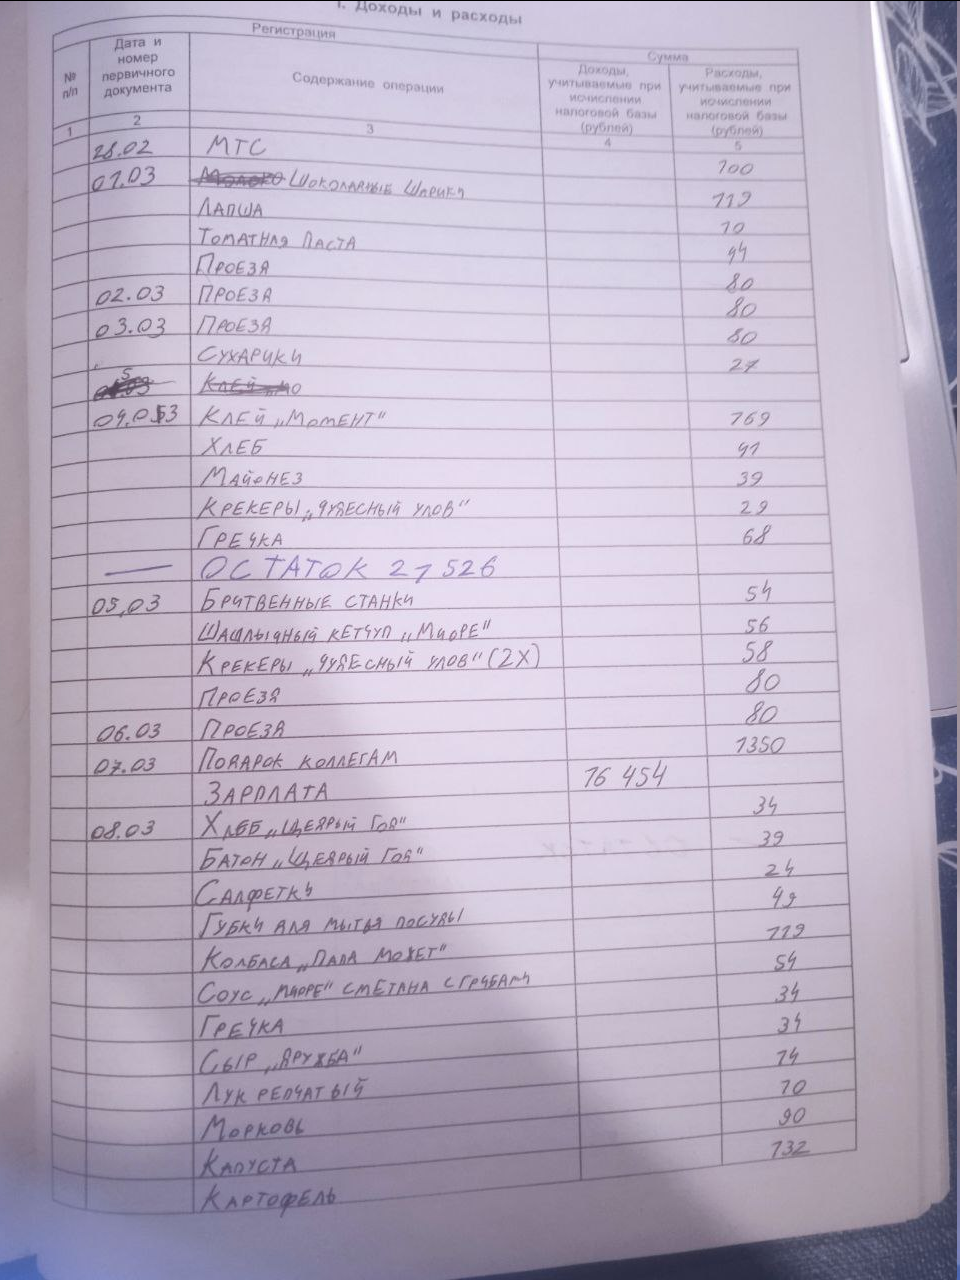 1. Доходы и расходы
Регистрация
Сумма
№ п/п
Дата и номер первичного документа
Содержание операции
Доходы, учитываемые при исчислении налоговой базы (рублей)
Расходы, учитываемые при исчислении налоговой базы (рублей)
1 2 3 4 5
28.02 МТС 100
01.03 Шоколадные шарики 119
Лапша 10
Томатная паста 44
Проезд 80
02.03 Проезд 80
03.03 Проезд 80
Сухарики 27
Клей „Мо
04.03 Клей „Момент" 169
Хлеб 41
Майонез 39
Крекеры „Чудесный улов" 29
Гречка 68
— ОСТАТОК 21 526
05,03 Бритвенные станки 54
Шашлычный кетчуп „Миоре" 56
Крекеры „Чудесный улов" (2X) 58
Проезд 80
06.03 Проезд 80
07.03 Подарок коллегам 1350
Зарплата 16 454
08.03 Хлеб „Щедрый Год" 34
Батон „Щедрый Год" 39
Салфетки 24
Губки для мытья посуды 49
Колбаса „Папа может" 119
Соус „Миоре" сметана с грибами 54
Гречка 34
Сыр „Дружба" 34
Лук репчатый 14
Морковь 10
Капуста 90
Картофель 132